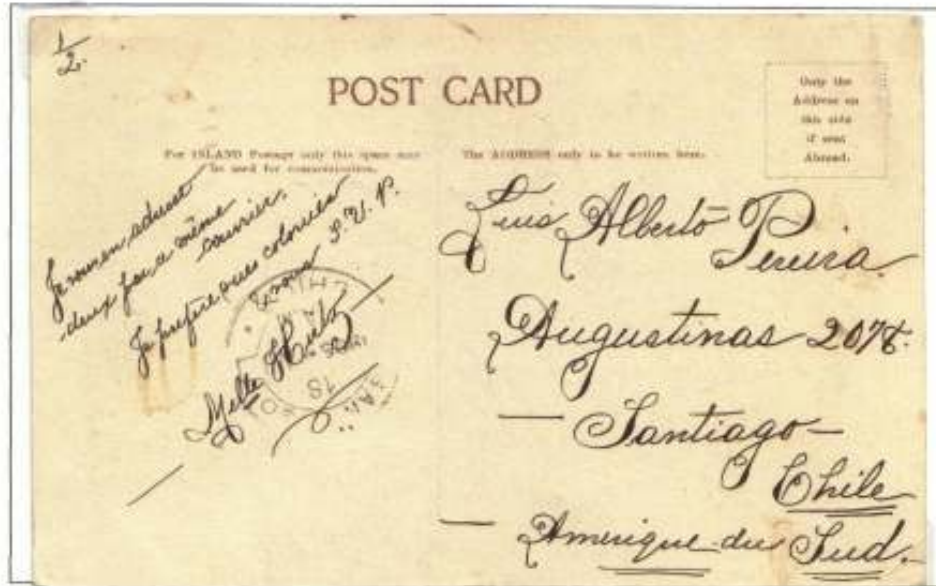 1/2
POST CARD
Only the
Address on
this side
if sent
Abroad.
For ISLAND Postage only this space may
be used for communication.
The ADDRESS only to be written here.
Je vous en adresse
deux par le même
courrier.
Je préfère vues coloriés
S.V.P.
Melle
Luis Alberto
Pereira.
Augustinas 2078.
Santiago
Chile
Amerique du Sud.